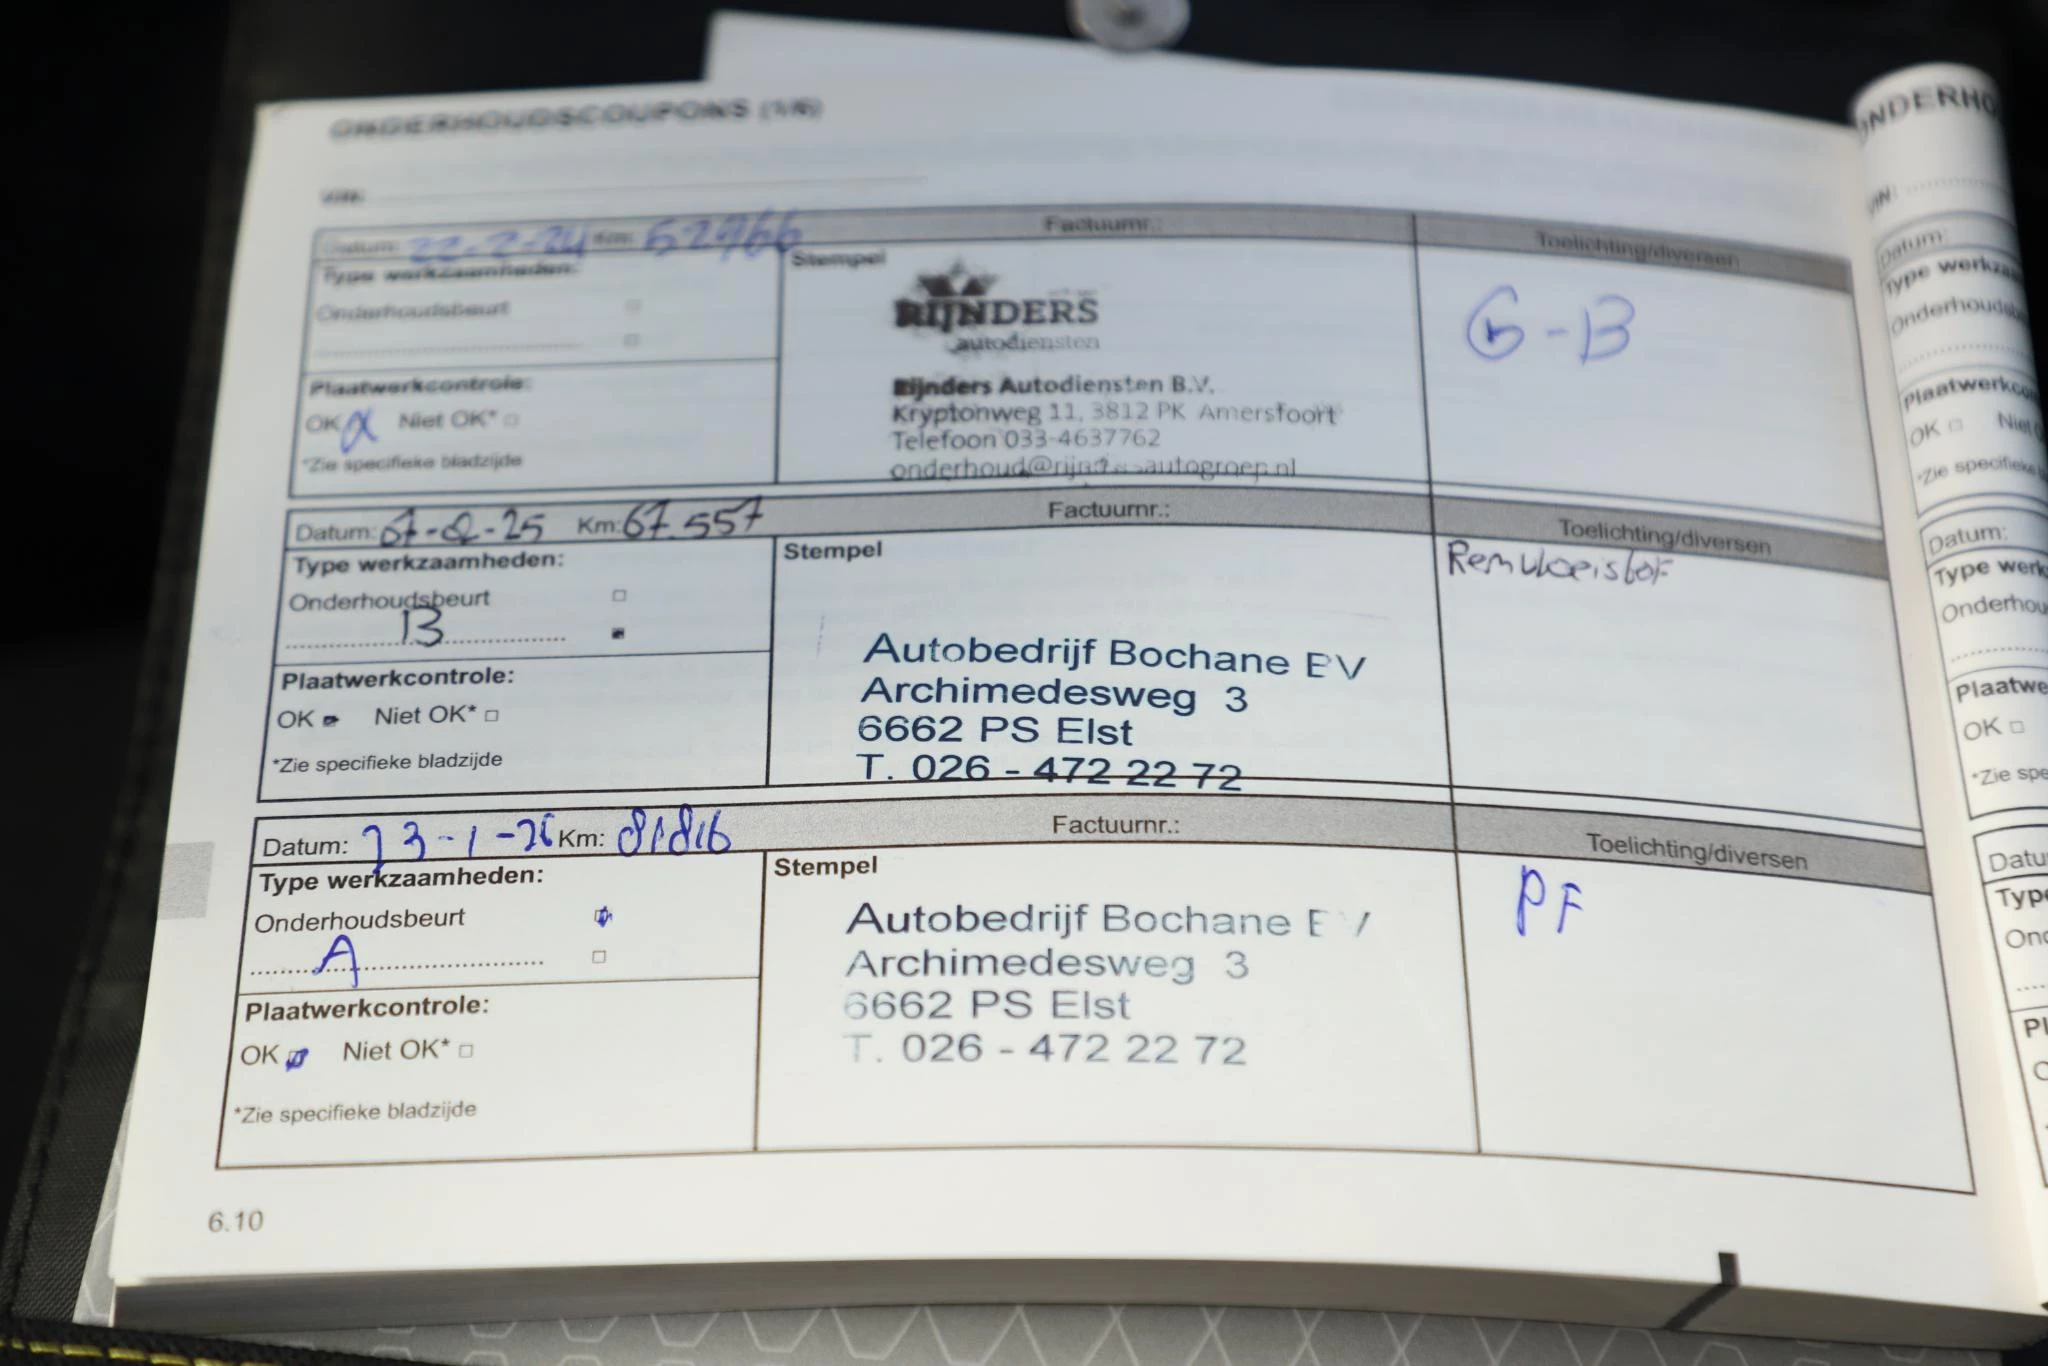 ONDERHOUDSCOUPONS (1/6)
VIN:
Datum: 22-2-24 Km: 52966 Factuurnr.: Toelichting/diversen
Type werkzaamheden:
Onderhoudsbeurt
Plaatwerkcontrole:
OK Niet OK*
*Zie specifieke bladzijde
Stempel
RIJNDERS
autodiensten
Rijnders Autodiensten B.V.
Kryptonweg 11, 3812 PK Amersfoort
Telefoon 033-4637762
onderhoud@rijndersautogroep.nl
G-B
Datum: 07-2-25 Km: 67.557 Factuurnr.: Toelichting/diversen
Type werkzaamheden:
Onderhoudsbeurt
B
Plaatwerkcontrole:
OK Niet OK*
*Zie specifieke bladzijde
Stempel
Autobedrijf Bochane BV
Archimedesweg 3
6662 PS Elst
T. 026 - 472 22 72
Remvloeistof
Datum: 23-1-26 Km: 81816 Factuurnr.: Toelichting/diversen
Type werkzaamheden:
Onderhoudsbeurt
A
Plaatwerkcontrole:
OK Niet OK*
*Zie specifieke bladzijde
Stempel
Autobedrijf Bochane BV
Archimedesweg 3
6662 PS Elst
T. 026 - 472 22 72
PF
6.10
VIN:
Datum:
Onderhouds
OK
Datum:
Type werk
Onderhou
Plaatwe
OK
*Zie spe
Datu
Type